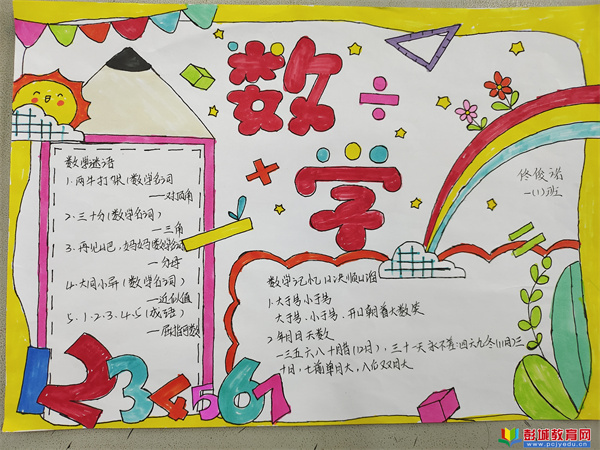 数学
数学谜语
1.两牛打架(数学名词)
—对顶角
2.三十分(数学名词)
—三角
3.再见吧,妈妈(数学名词)
—分母
4.大同小异(数学名词)
—近似值
5.1、2、3、4、5(成语)
—屈指可数
1234567
佟俊诺
一(1)班
数学记忆口诀顺口溜
1.大于号小于号
大于号,小于号,开口朝着大数笑
2.年月日天数
一三五六八十腊(12月),三十一天永不差;四六九冬(11月)三
十日,七前单月大,八后双月大
彭城教育网
www.pcjyedu.cn